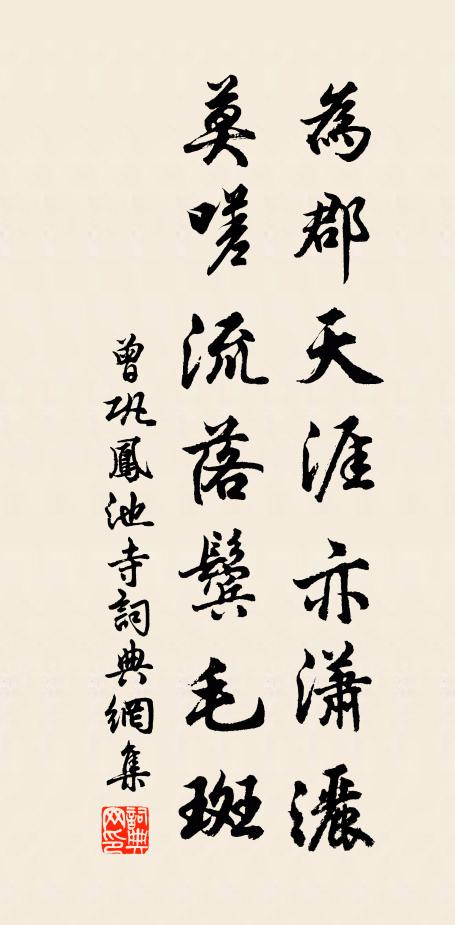 為郡天涯亦瀟灑
莫嗟流落鬢毛斑
曾巩鳳池寺詞典網集
詞典
网印